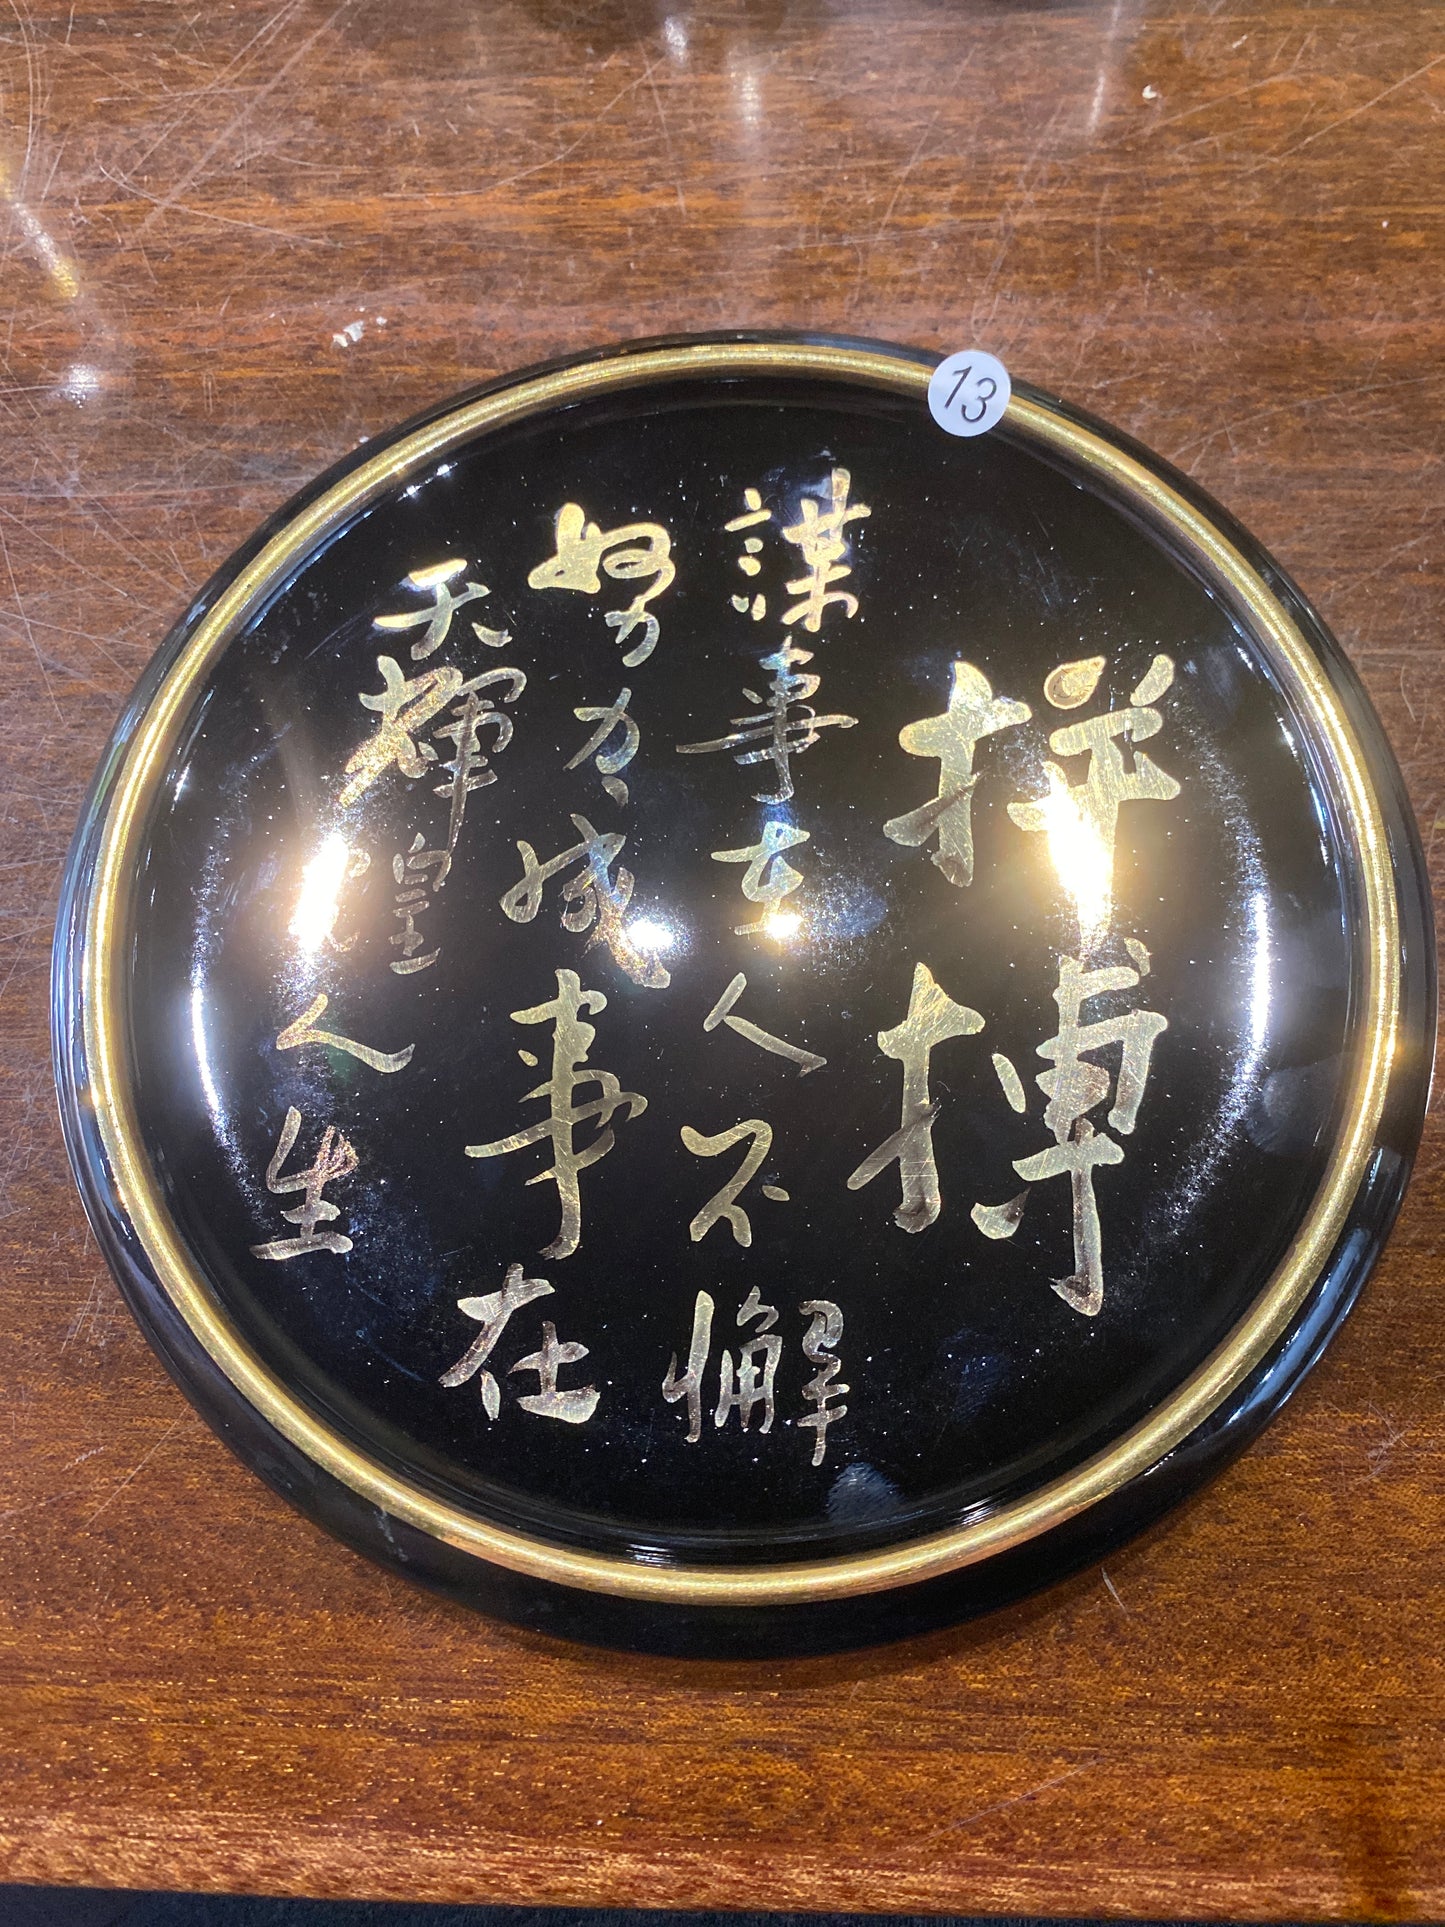 13
拼搏
謀事在人不懈
努力成事在
天輝煌人生